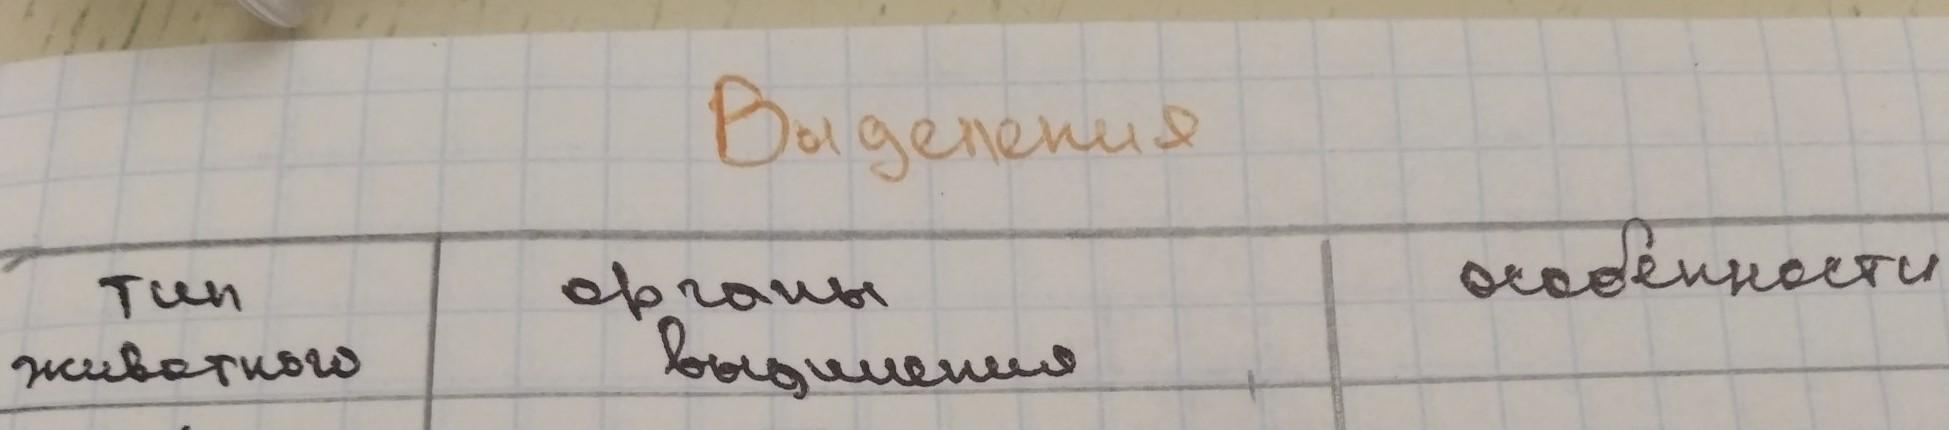 Выделения
тип органы особенности
животного выдиления